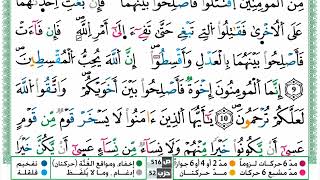 مِنَ ٱلْمُؤْمِنِينَ ٱقْتَتَلُوا۟ فَأَصْلِحُوا۟ بَيْنَهُمَا ۖ فَإِنۢ بَغَتْ إِحْدَىٰهُمَا
عَلَى ٱلْأُخْرَىٰ فَقَٰتِلُوا۟ ٱلَّتِى تَبْغِى حَتَّىٰ تَفِىٓءَ إِلَىٰٓ أَمْرِ ٱللَّهِ ۚ فَإِن فَآءَتْ
فَأَصْلِحُوا۟ بَيْنَهُمَا بِٱلْعَدْلِ وَأَقْسِطُوٓا۟ ۖ إِنَّ ٱللَّهَ يُحِبُّ ٱلْمُقْسِطِينَ
9 إِنَّمَا ٱلْمُؤْمِنُونَ إِخْوَةٌ فَأَصْلِحُوا۟ بَيْنَ أَخَوَيْكُمْ ۚ وَٱتَّقُوا۟ ٱللَّهَ
لَعَلَّكُمْ تُرْحَمُونَ 10 يَٰٓأَيُّهَا ٱلَّذِينَ ءَامَنُوا۟ لَا يَسْخَرْ قَوْمٌ مِّن قَوْمٍ
عَسَىٰٓ أَن يَكُونُوا۟ خَيْرًا مِّنْهُمْ وَلَا نِسَآءٌ مِّن نِّسَآءٍ عَسَىٰٓ أَن يَكُنَّ خَيْرًا
مدّ 6 حركات لزوماً مدّ 2 أو 4 أو 6 جوازاً ص 516 إخفاء، ومواقع الغُنَّة (حركتان) تفخيم
مدّ مشبع 6 حركات مدّ حركتان حزب 52 إدغام، وما لا يُلفَظ قلقلة